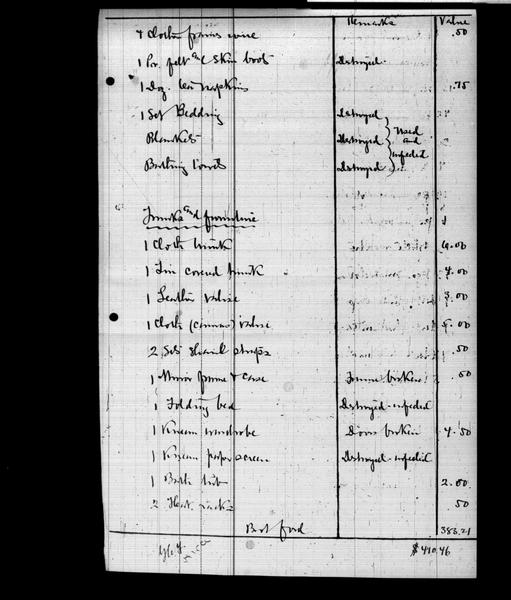 Remarks Value
4 Clothes frames wire .50
1 Pr. felt and skin boots Destroyed.
1 Doz. tea napkins .75
1 Set Bedding Destroyed
Blankets Destroyed } Used and infected
Bathing towels Destroyed
Trunks and furniture
1 Cloth trunk 6.00
1 Tin covered trunk 4.00
1 Leather valise 3.00
1 Cloth (canvas) valise 5.00
2 Sets shawl straps .50
1 Mirror frame & case Frame broken .50
1 Folding bed Destroyed-infected
1 Korean wardrobe Doors broken 4.50
1 Korean paper screen Destroyed-infected
1 Bath tub 2.00
2 Hat racks 50
Brot ford 383.21
$410.46